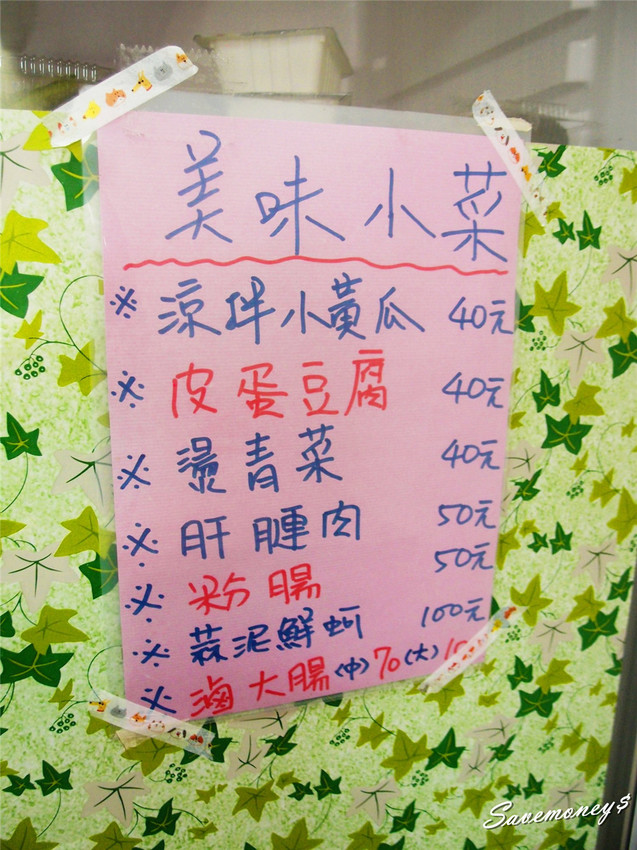 美味小菜
※ 涼拌小黃瓜 40元
※ 皮蛋豆腐 40元
※ 燙青菜 40元
※ 肝腫肉 50元
※ 粉腸 50元
※ 蒜泥鮮蚵 100元
※ 滷大腸(中)70(大)
Savemoney$